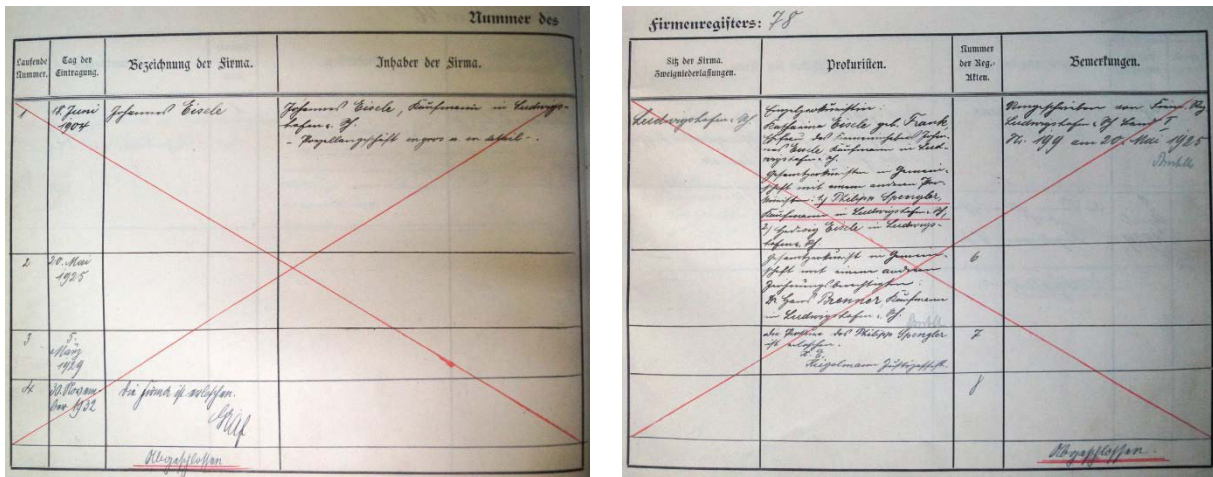 Nummer des
Laufende
Nummer.
Tag der
Eintragung.
Bezeichnung der Firma.
Inhaber der Firma.
1
18. Juni
1904
Johannes Eisele
Johannes Eisele, Kaufmann in Ludwigs-
hafen a. Rh.
- Porzellangeschäft en gros u. en detail -.
2
20. Mai
1925
3
5.
März
1929
4
30. Novem
ber 1932
Die Firma ist erloschen.
Graf
Abgeschlossen
Firmenregisters: 78
Sitz der Firma.
Zweigniederlassungen.
Prokuristen.
Nummer
der Reg.-
Akten.
Bemerkungen.
Ludwigshafen a. Rh.
Einzelprokuristin:
Katharina Eisele geb. Frank
Ehefrau des Firmeninhabers Johan-
nes Eisele Kaufmann in Lud-
wigshafen a. Rh.
Gesamtprokuristen in Gemein-
schaft mit einem anderen Pro-
kuristen: 1) Philipp Spengler,
Kaufmann in Ludwigshafen a. Rh,
2) Hedwig Eisele in Ludwigs-
hafen a. Rh.
Umgeschrieben von Firm. Reg
Ludwigshafen a. Rh Band I
Nr. 199 am 20. Mai 1925
Gesamtprokurist in Gemein-
schaft mit einem anderen
Zeichnungsberechtigten:
Dr. Hans Brenner Kaufmann
in Ludwigshafen a. Rh.
6
Die Prokura des Philipp Spengler
ist erloschen.
7
8
Abgeschlossen.